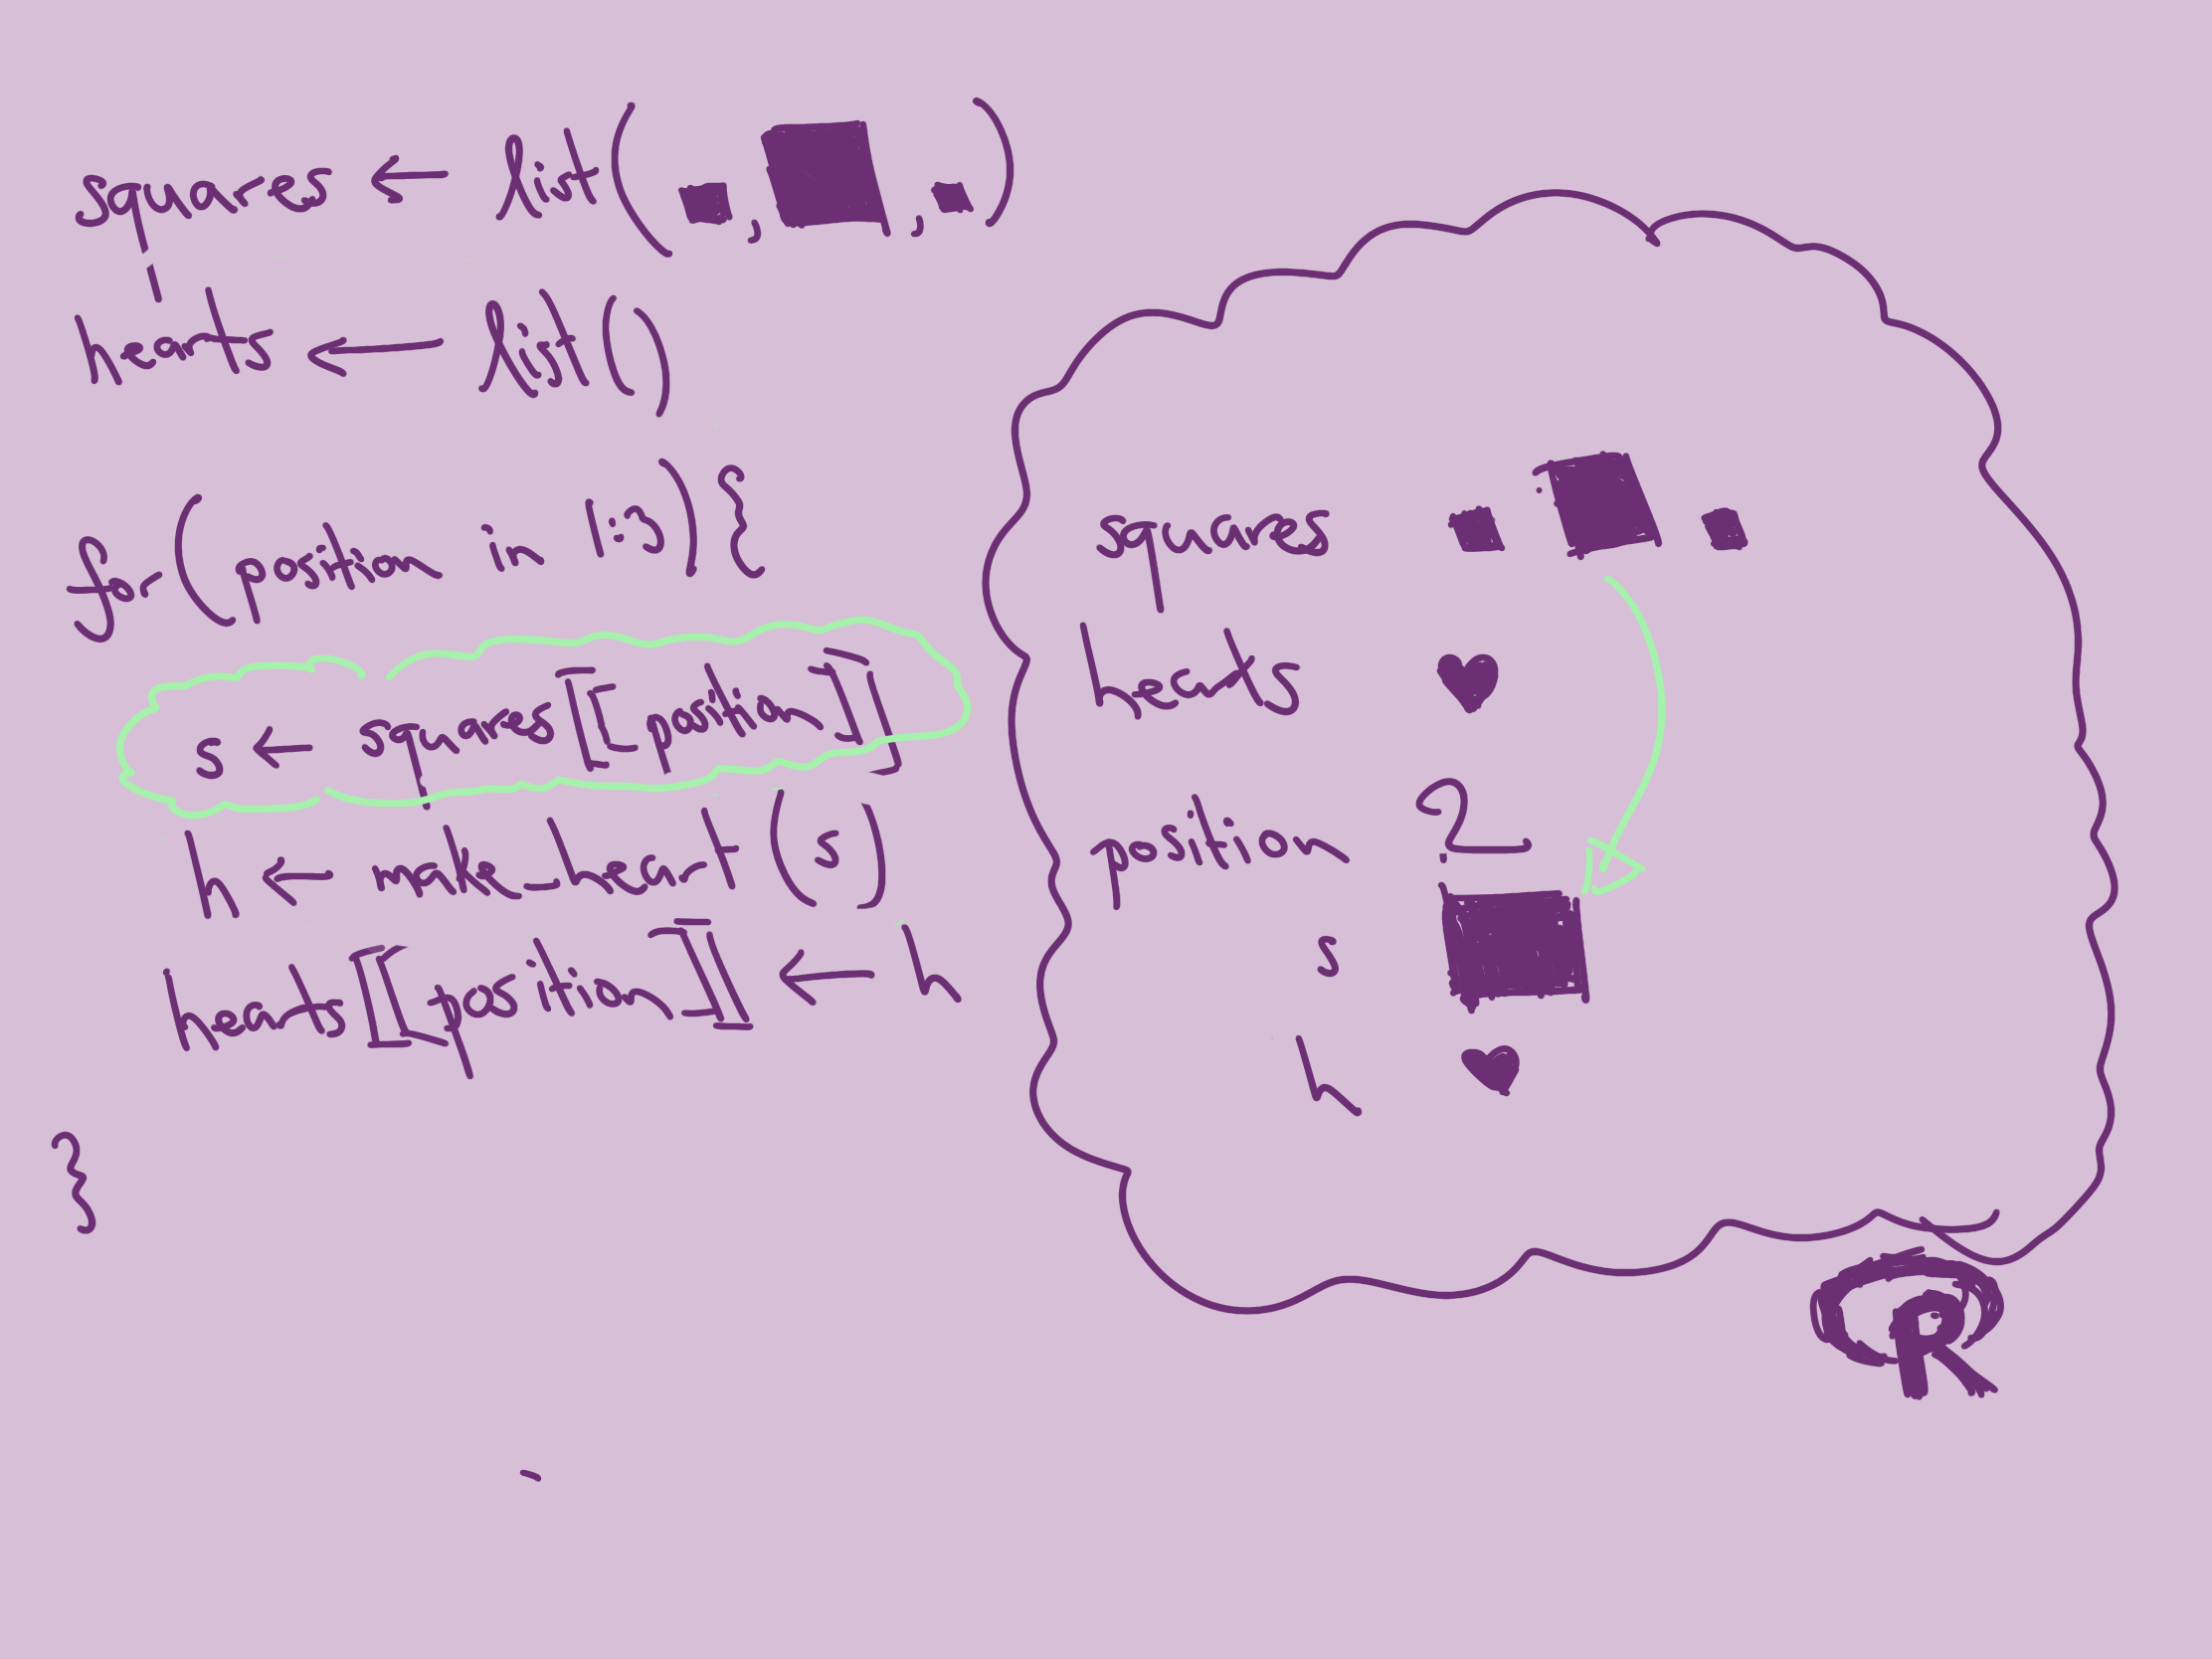 squares ← list( , , )
hearts ← list()
for (position in 1:3) {
s ← squares[[position]]
h ← make_heart(s)
hearts[[position]] ← h
}
squares
hearts
position 2
s
h
R